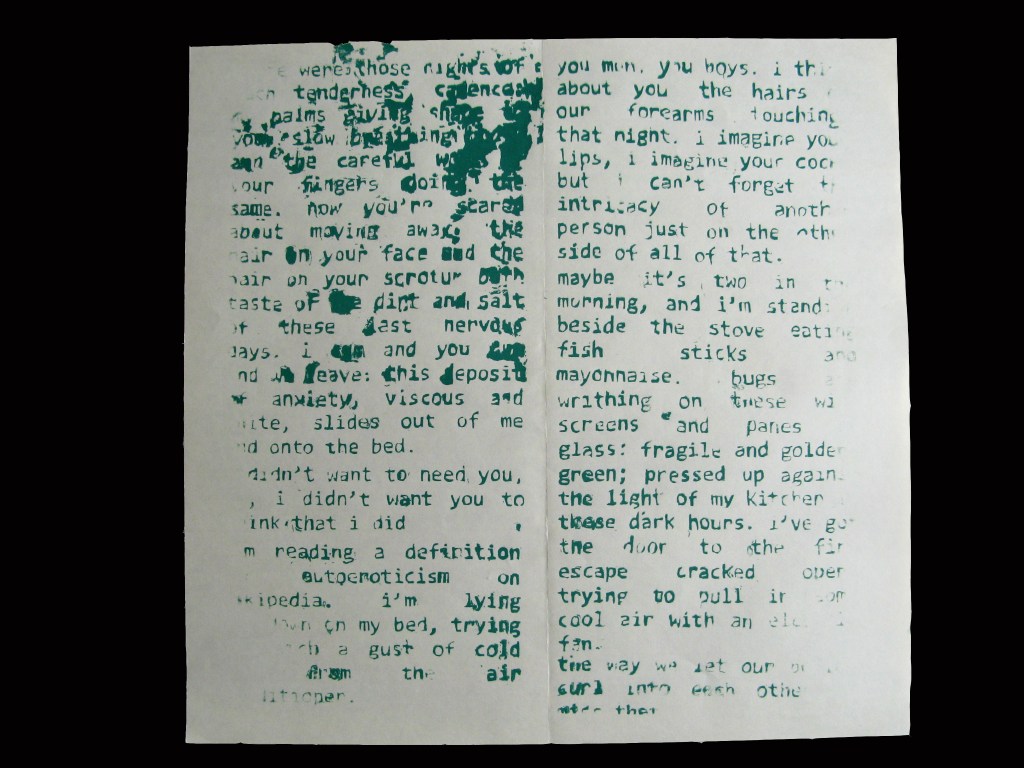 were those nights of
tenderness, cadence
palms giving shape
your slow breathing
and the careful
your fingers doing the
same. now you're scared
about moving away. the
hair on your face and the
hair on your scrotum both
taste of the dirt and salt
of these last nervous
days. i am and you are
and we leave: this deposit
of anxiety, viscous and
slides out of me
and onto the bed.
didn't want to need you,
, i didn't want you to
that i did
reading a definition
autoeroticism on
wikipedia. i'm lying
down on my bed, trying
a gust of cold
from the air
you men. you boys. i
about you the hairs
our forearms touching
that night. i imagine your
lips, i imagine your cock
but i can't forget
intricacy of
person just on the
side of all of that.
maybe it's two in
morning, and i'm
beside the stove eating
fish sticks and
mayonnaise. bugs
writhing on these
screens and panes
glass: fragile and golden
green; pressed up
the light of my kitchen
these dark hours. i've got
the door to the
escape cracked open
trying to pull in
cool air with an
fan.
the way we let our
curl into each
after that